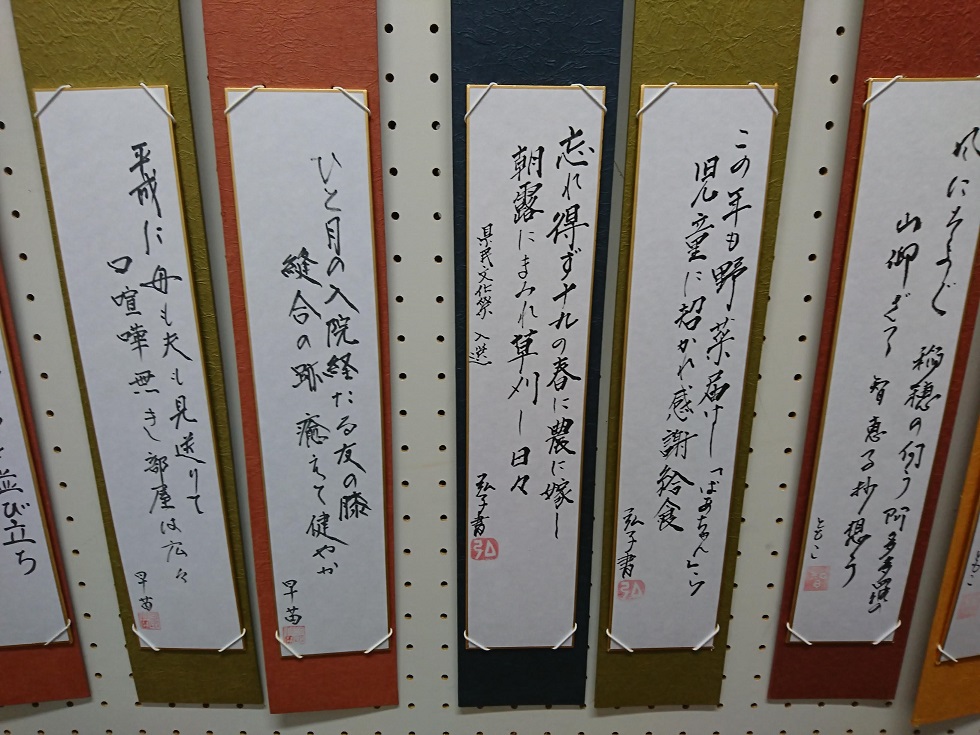 にそよぐ 稲穂の匂う 阿多多羅
山仰ぎつつ 智恵子抄想う
ともこ
この年も野菜届けし「ばあちゃん」と
旧児童に招かれ感謝給食
弘子書
忘れ得ず十九の春に農に嫁し
朝露にまみれ草刈りし日々
県民文化祭 入選
弘子書
ひと月の入院経たる友の膝
縫合の跡癒えて健やか
早苗
平成に母も夫も見送りて
口喧嘩無き部屋は広々
早苗
並び立ち